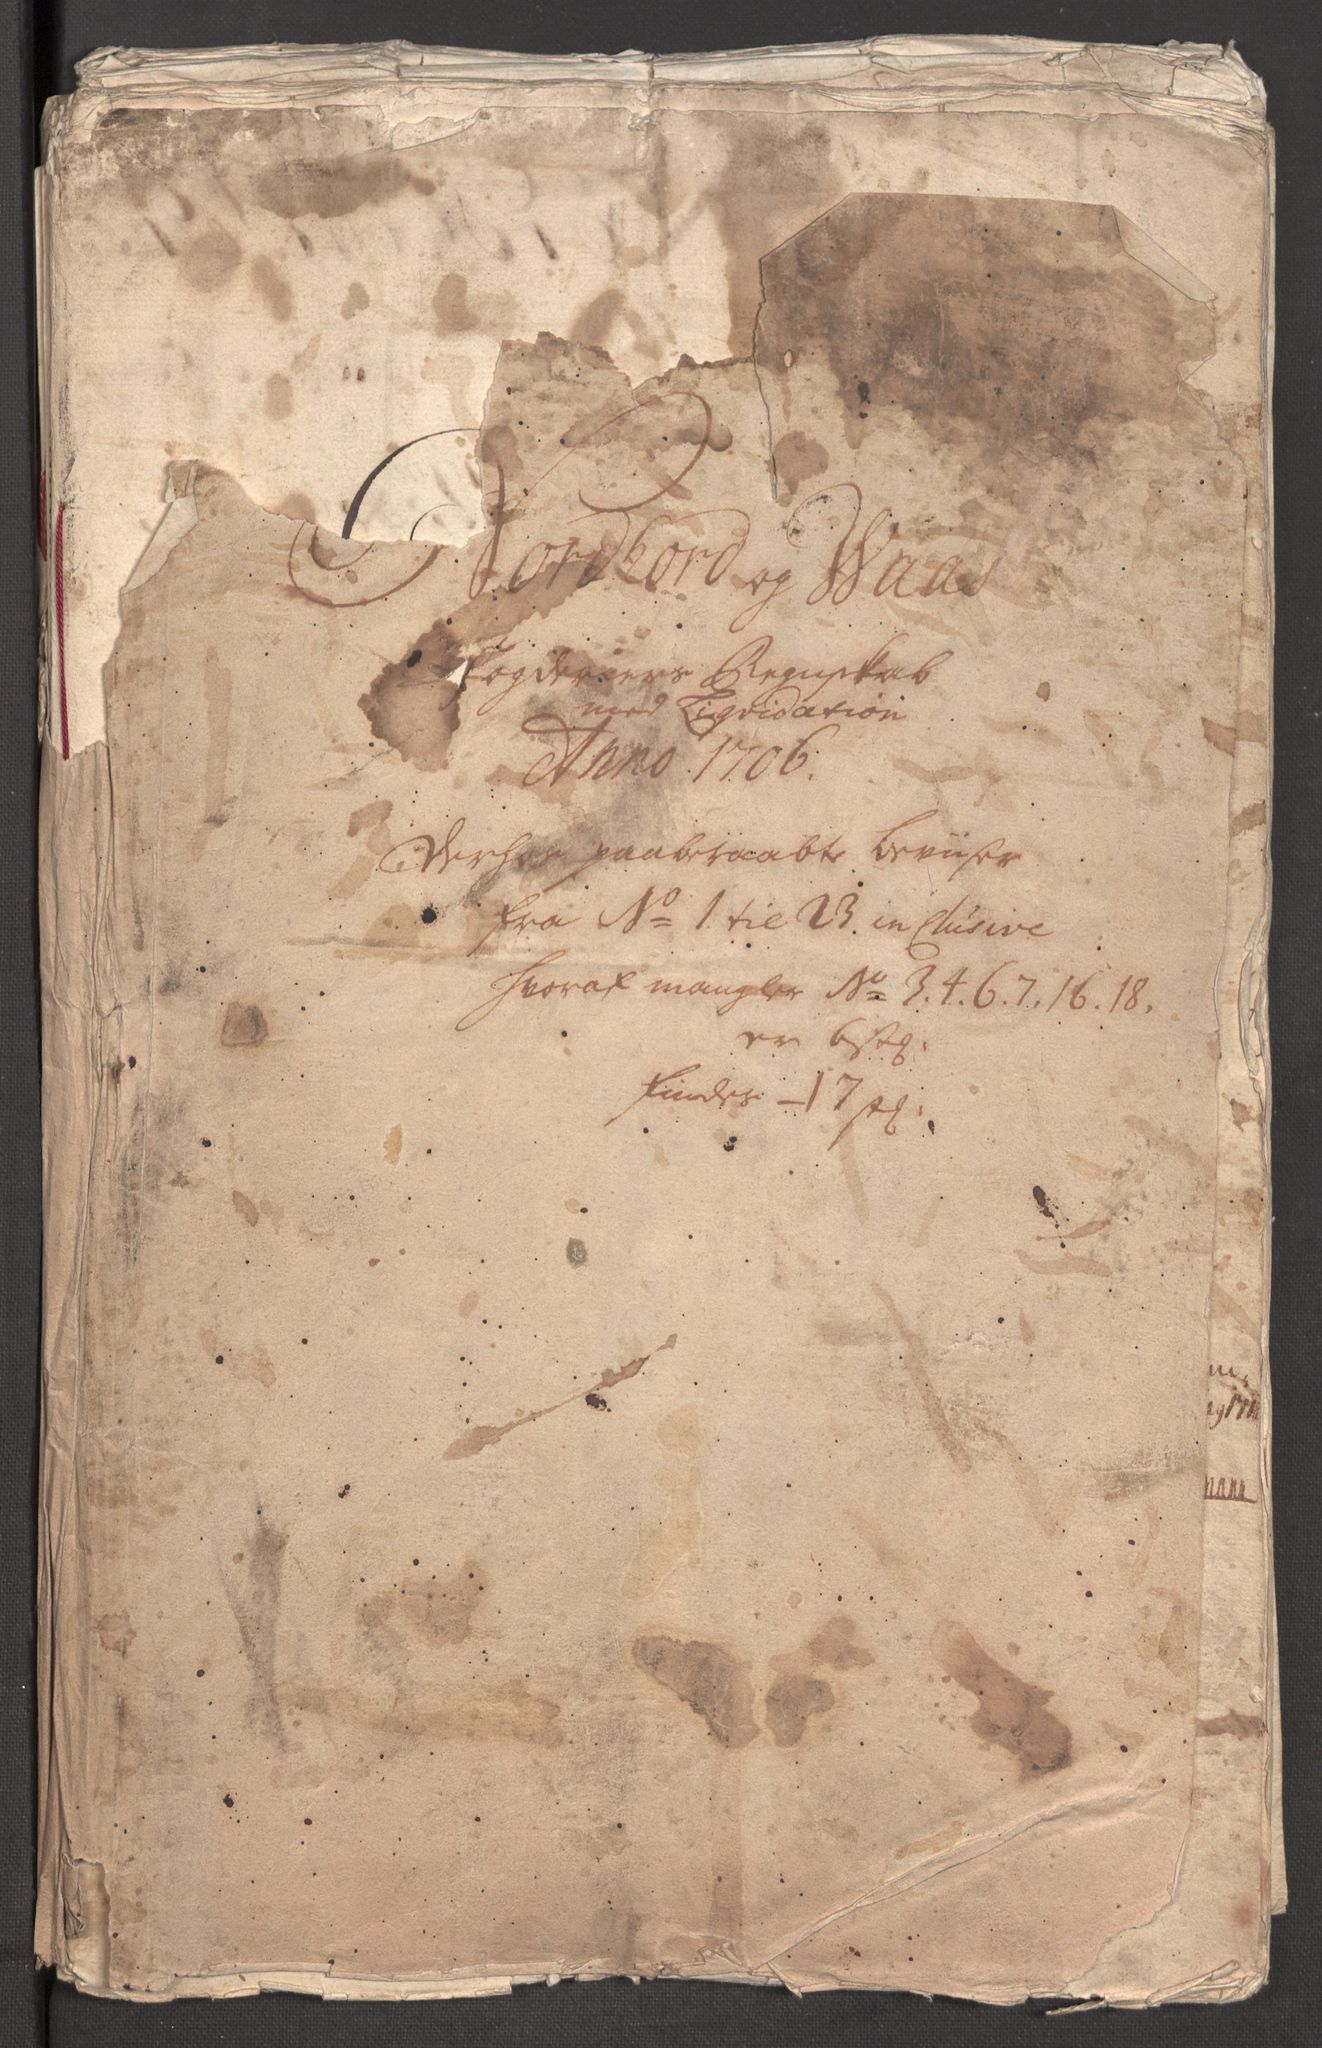 Nordhord og Waas
Fogderiers Regnskab
med Liqvidation
Anno 1706.
Derhos paaberaabte beviiser
fra No 1 til 23 inclusive
hvoraf mangler No 3.4.6.7.16.18.
er 6 stq:
findes - 17 stq: